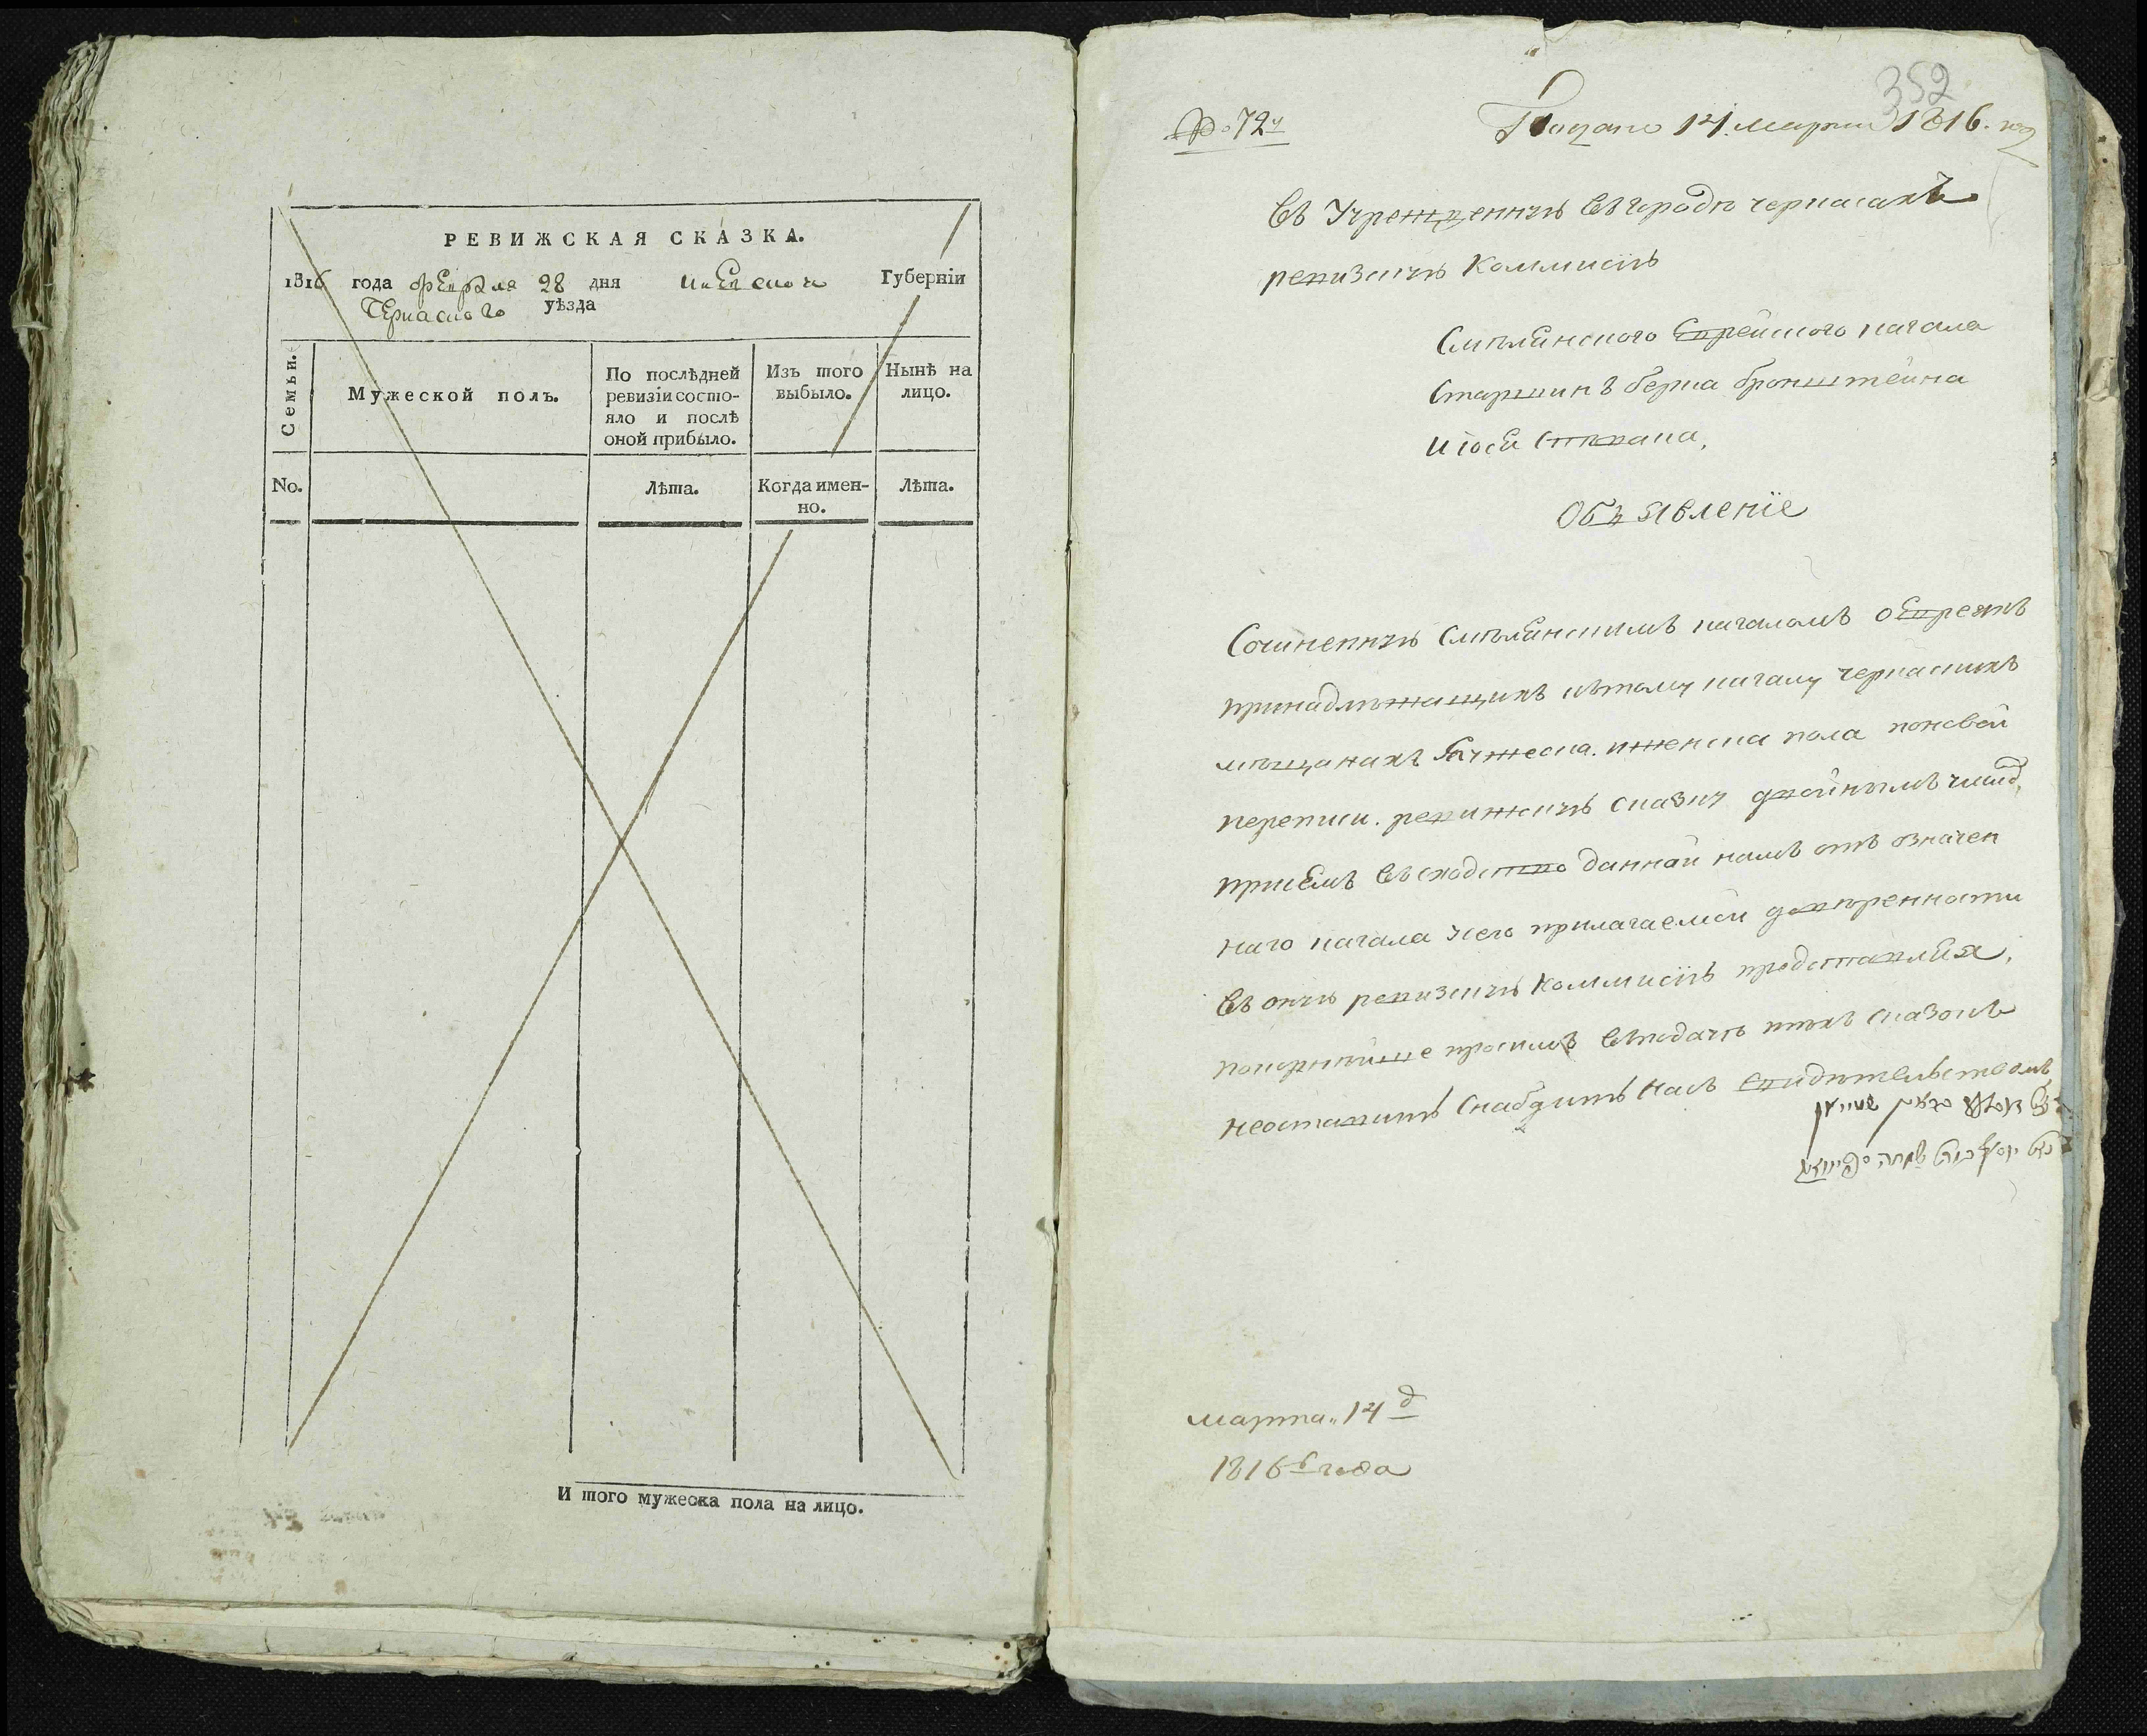 РЕВИЖСКАЯ СКАЗКА.
1816 года февраля 28 дня Киевской Губерніи
Черкаского уѣзда
Семьи.
Мужеской полъ.
По послѣдней
ревизіи состо-
яло и послѣ
оной прибыло.
Изъ того
выбыло.
Нынѣ на
лицо.
No.
Лѣта.
Когда имен-
но.
Лѣта.
И того мужеска пола на лицо.
352
№ 72й
Подано 14 марта 1816 год
Въ Учрежденную въ городѣ черкасахъ
ревизскую Коммисію
Смѣлянского Еврейского кагала
Старшинъ берка бронштейна
и іося
Объявленіе
Сочиненную Смѣлянскимъ кагаломъ о Евреяхъ
принадлежащихъ кътому кагалу черкаскихъ
мѣщанахъ Мужеска. иженска пола поновой
переписи. ревижскую сказку двойнымъ
въсходство данной намъ отъ означен
наго кагала унего прилагаемой довѣренности
Въ оную ревизскую Коммисію представляя,
покорнѣйше просимъ въподачѣ тѣхъ сказокъ
неоставить снабдить насъ свидѣтельствомъ
марта 14 д
1816 года